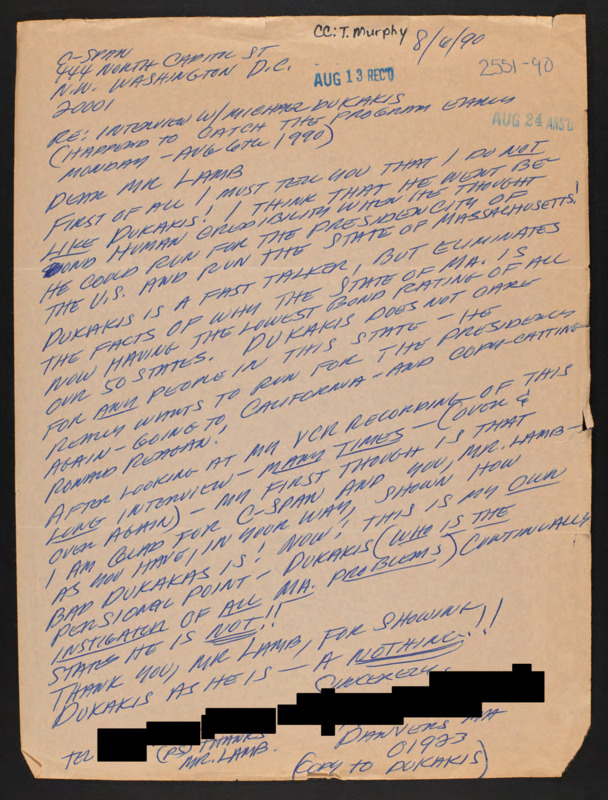 CC: T. Murphy
8/6/90
C-SPAN
444 NORTH CAPITOL ST
N.W. WASHINGTON D.C.
20001
AUG 13 REC'D
2551-90
AUG 24 ANS'D
RE: INTERVIEW W/ MICHAEL DUKAKIS
(HAPPEND TO CATCH THE PROGRAM EARLY
MONDAY - AUG 6th 1990)
DEAR MR LAMB
FIRST OF ALL I MUST TELL YOU THAT I DO NOT
LIKE DUKAKIS! I THINK THAT HE WENT BE-
OND HUMAN CREDIBILITY WHEN HE THOUGHT
HE COULD RUN FOR THE PRESIDENCITY OF
THE U.S. AND RUN THE STATE OF MASSACHUSETTS!
DUKAKIS IS A FAST TALKER, BUT ELIMINATES
THE FACTS OF WHY THE STATE OF MA. IS
NOW HAVING THE LOWEST BOND RATING OF ALL
OUR 50 STATES. DUKAKIS DOES NOT CARE
FOR ANY PEOPLE IN THIS STATE - HE
REALLY WANTS TO RUN FOR THE PRESIDENCY
AGAIN - GOING TO CALIFORNIA - AND COPY-CATTING
RONALD REAGAN!
AFTER LOOKING AT MY VCR RECORDING OF THIS
LONG INTERVIEW - MANY TIMES - (OVER &
OVER AGAIN) - MY FIRST THOUGH IS THAT
I AM GLAD FOR C-SPAN AND YOU, MR. LAMB -
AS YOU HAVE, IN YOUR WAY, SHOWN HOW
BAD DUKAKAS IS! NOW! THIS IS MY OWN
PERSIONAL POINT - DUKAKIS (WHO IS THE
INSTIGATER OF ALL MA. PROBLEMS) CONTINUALLY
STATE HE IS NOT!!
THANK YOU, MR LAMB, FOR SHOWING
DUKAKIS AS HE IS - A NOTHING!!
SINCERELY,
DANVERS MA
01923
TEL
(PS) THANKS
MR. LAMB.
(COPY TO DUKAKIS)